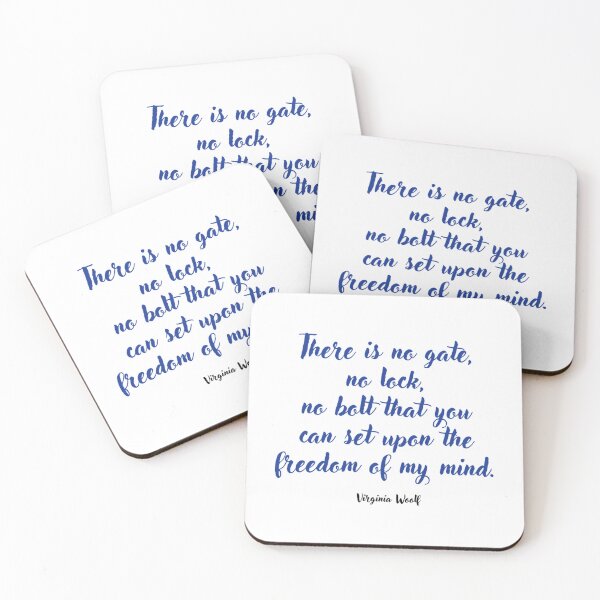 There is no gate,
no lock,
no bolt that you
the
There is no gate,
no lock,
no bolt that you
can set upon the
freedom of my mind.
There is no gate,
no lock,
no bolt that you
can set upon the
freedom of my
Virginia
There is no gate,
no lock,
no bolt that you
can set upon the
freedom of my mind.
Virginia Woolf